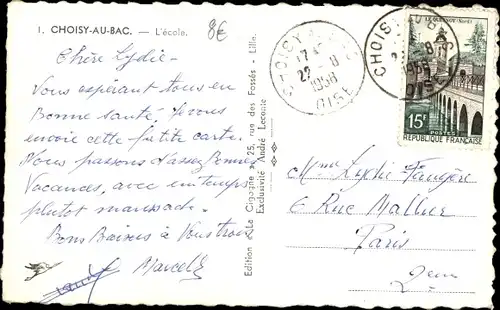 1. CHOISY-AU-BAC. — L'école.
8€
Chère Lydie
Vous espérant tous en
Bonne santé. Je vous
envoie cette petite carte.
Nous passons d'assez Bonnes
Vacances, avec un temps
plutot maussade.
Bons Baisers à Vous trois
Marcel
Edition « La Cigogne » 25, rue des Fossés - Lille.
Exclusivité André Leconte
CHOISY-AU-BAC
17 H
22 - 8
1958
OISE
CHOISY-AU-BAC
22 - 8
1958
OISE
LE QUESNOY (Nord)
15F
POSTES
REPUBLIQUE FRANÇAISE
Mme Lydie
6 Rue
Paris
2em